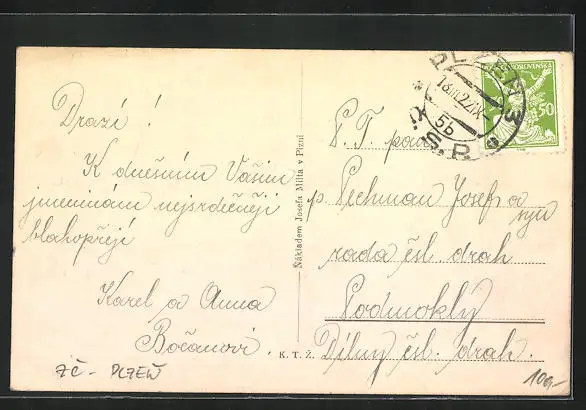 Drazí !
K dnešním Vašim
jmeninám nejsrdečněji
blahopřejí
Karel a Anna
Bočanovi
ZČ - PLZEŇ
Nákladem Josefa Milta v Plzni
K. T. Ž.
PLZEŇ 3
18.III.22.IX-
5b
Č.S.P.
ČESKOSLOVENSKÁ
50
P. T. pan
p. Pechman Josef a
rada čsl drah
Podmokly
Dílny čsl. drah.
100,-